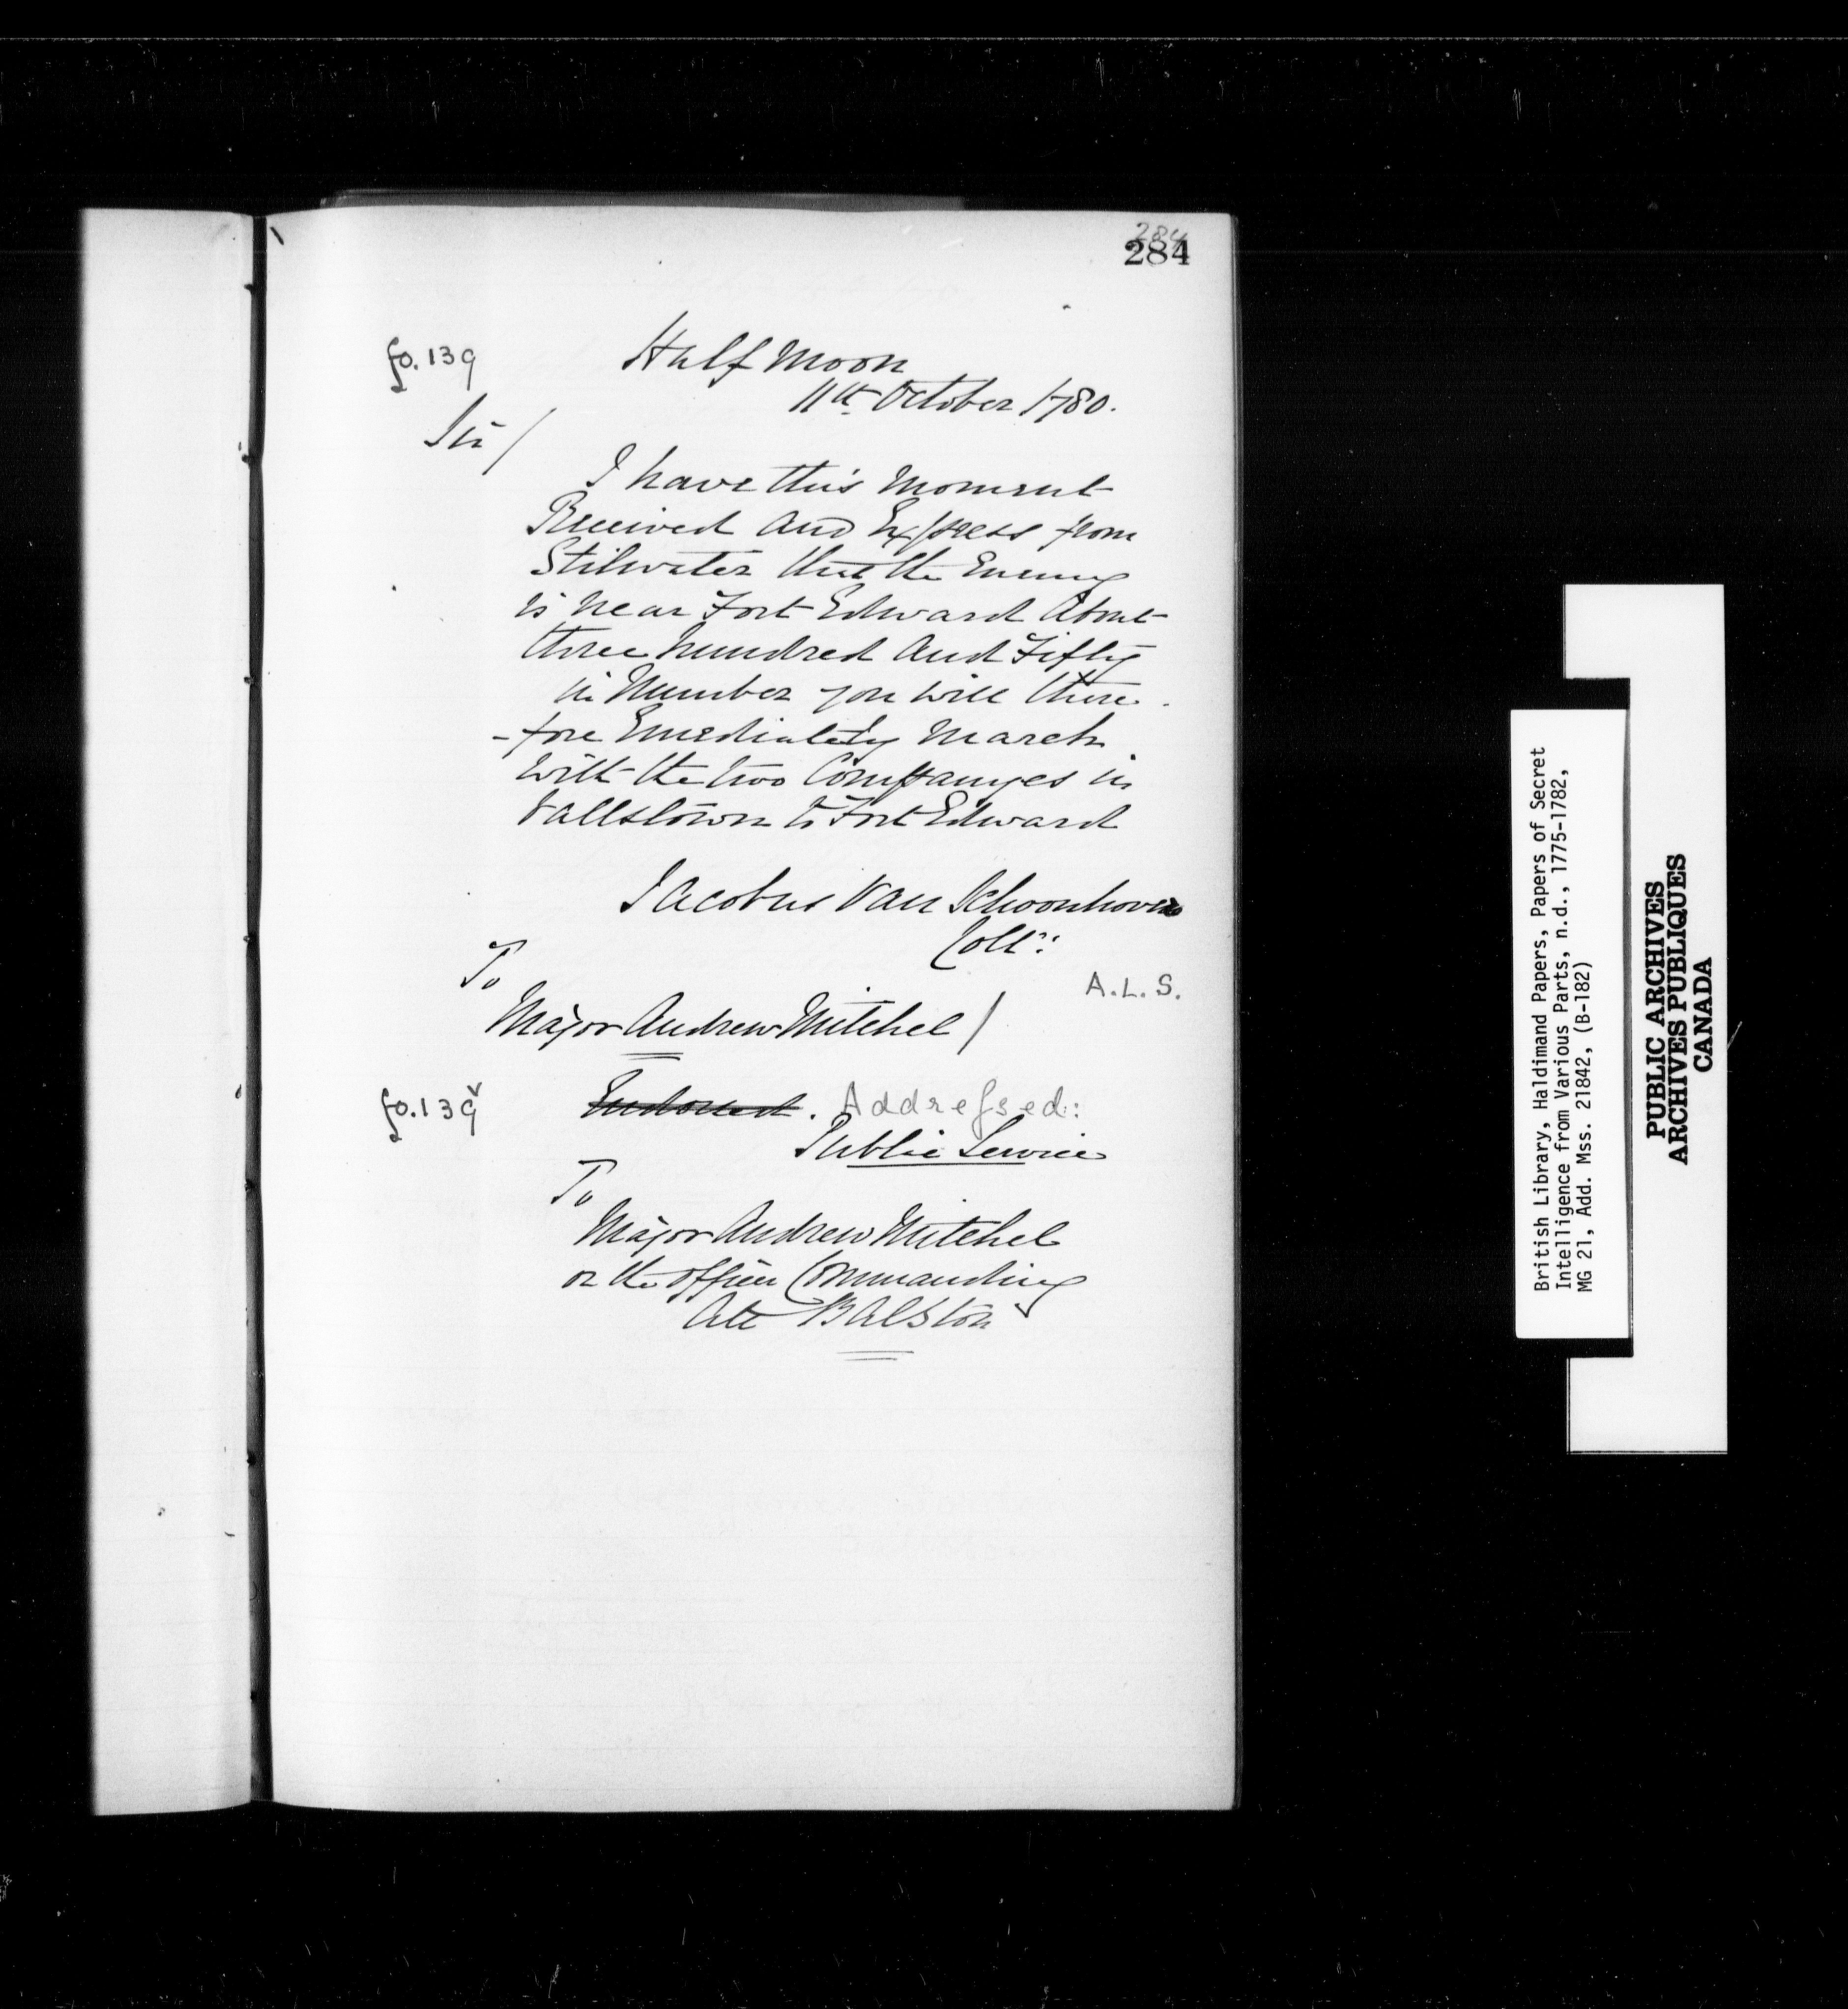 284
284
fo. 139
Half Moon
11th October 1780.
Sir/
I have this Moment
Received and Express from
Stilwater that the Enemy
is near Fort Edward About
three hundred And Fifty
in Number you will there
-fore Emediately March
with the two Companyes in
Vallstown to Fort Edward
Jacobus Van Schoonhoven
Coll::
A.L.S.
To
Major Andrew Mitchel/
fo. 139v
Endorsed. Addressed:
Public Service
To
Major Andrew Mitchel
or the officer Commanding
Att BAlston
British Library, Haldimand Papers, Papers of Secret
Intelligence from Various Parts, n.d., 1775-1782,
MG 21, Add. Mss. 21842, (B-182)
PUBLIC ARCHIVES
ARCHIVES PUBLIQUES
CANADA